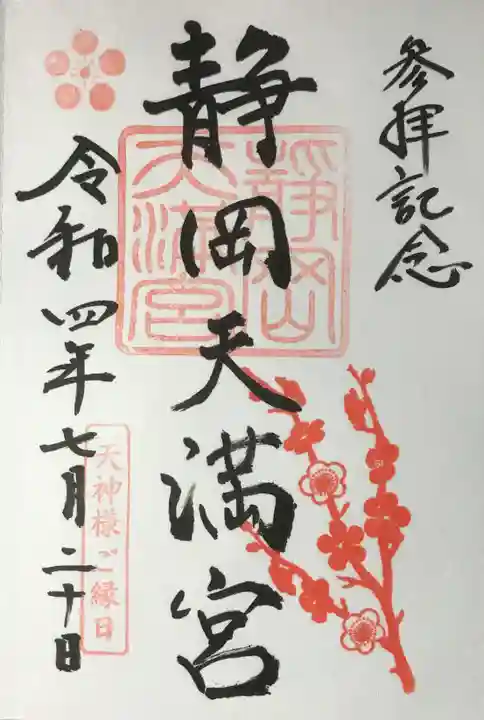 参拝記念
静岡天満宮
静岡天満宮
令和四年七月二十日
天神様ご縁日